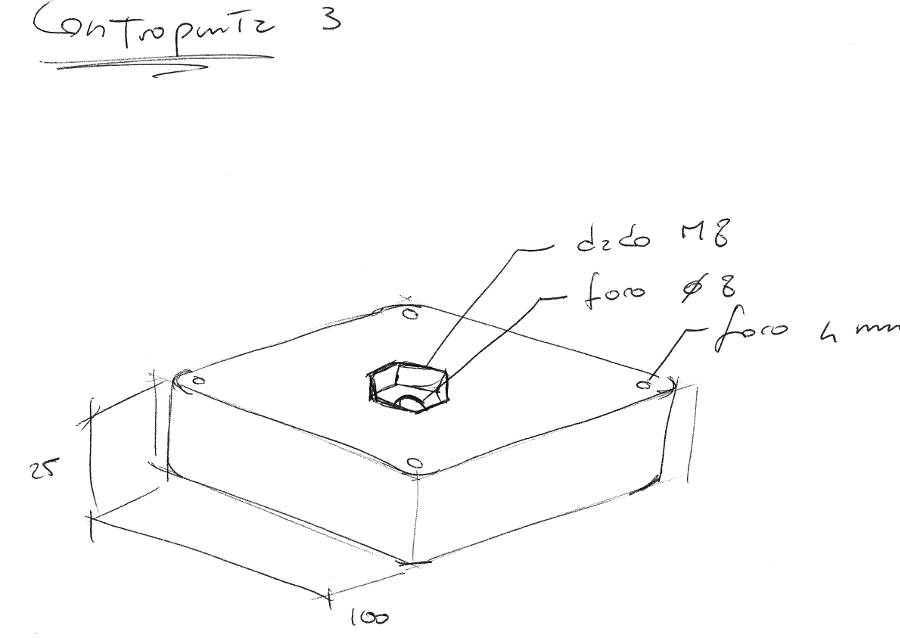 Contropunta 3
dado M8
foro ø 8
foro 4 mm
25
100